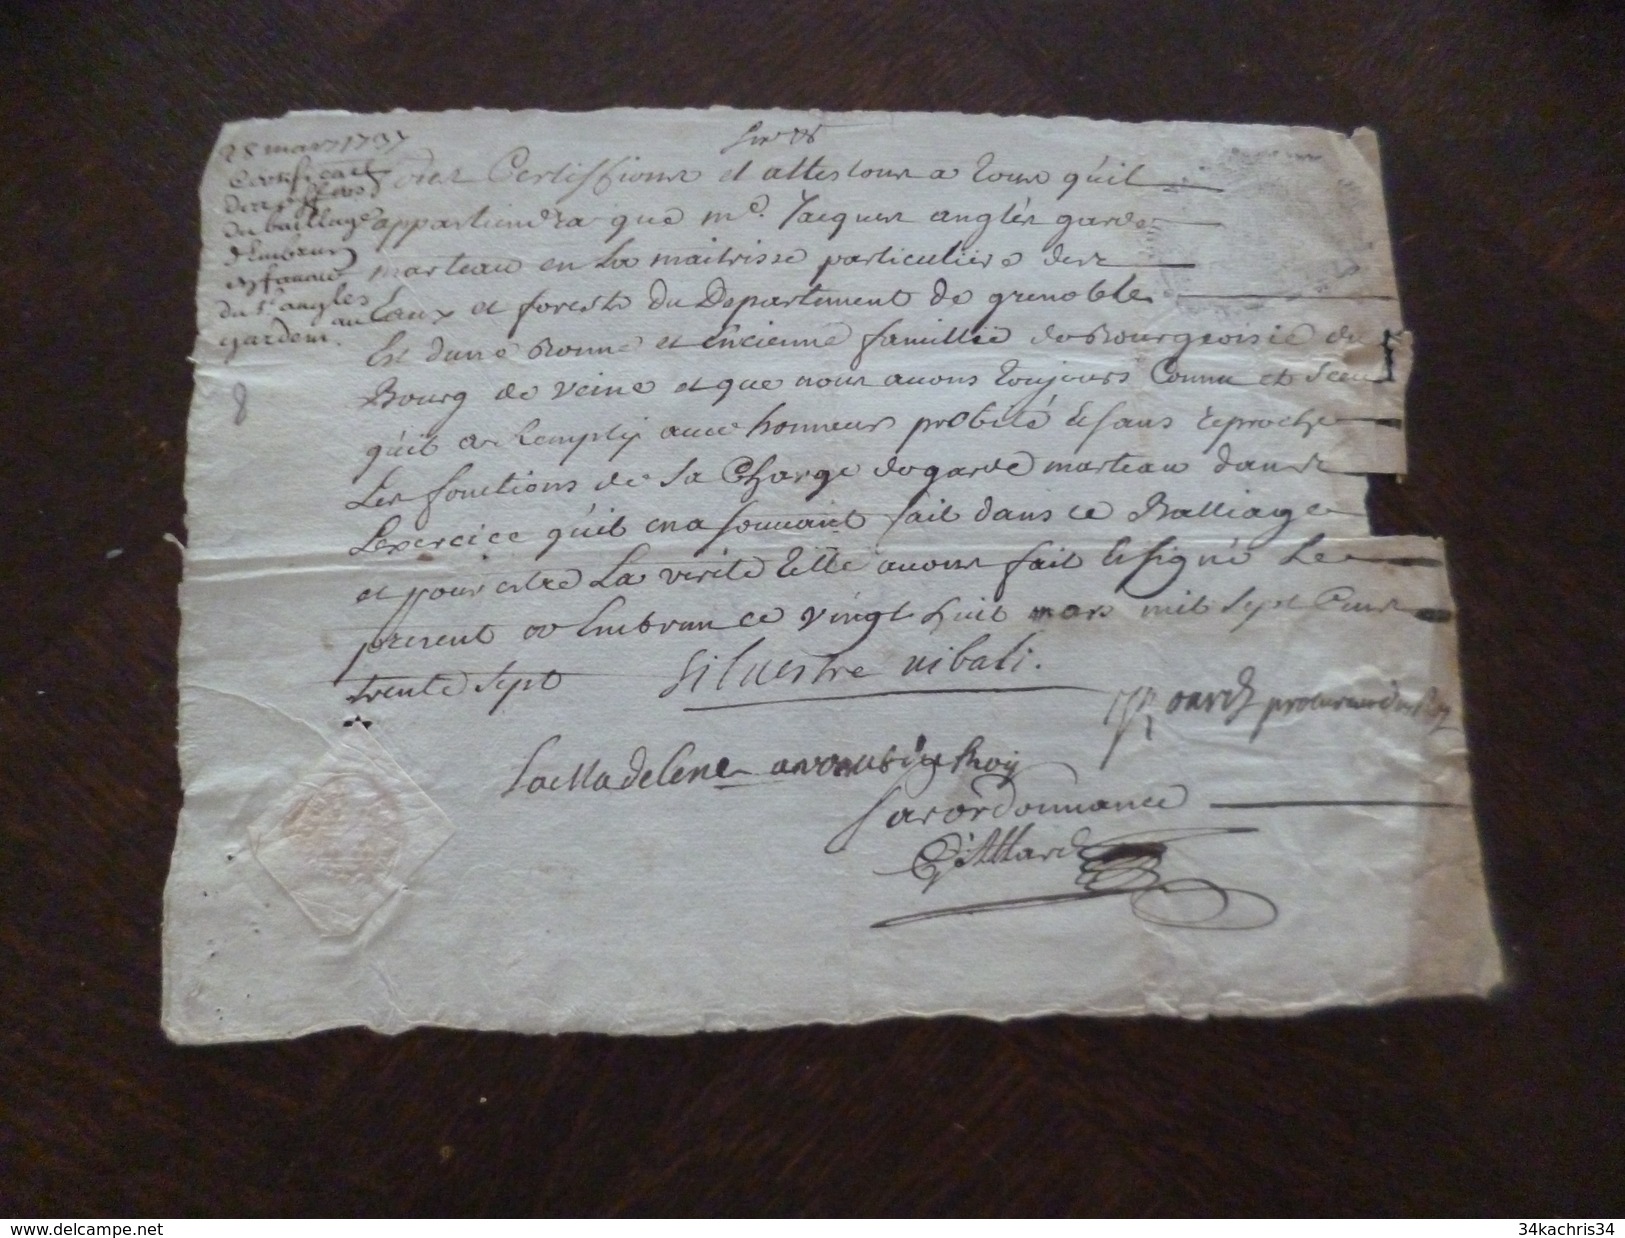 28 mars 1737
Certificat
du baillage
d'embrun
du Sr. angles
garde m.
8
Nous Certiffions et attestons a tous quil
appartiendra que me. Jacques anglés garde
marteau en La maitrisse particuliere des
Eaux et forests du Departement de grenoble
Est dune Bonne et Encienne famillie de Bourgeoisie du
Bourg de veine et que nous avons toujours Connu et sceu
quil a Remply avec honneur probité Et sans reproche
Les fonctions de sa Charge de garde marteau dans
Lexercice quil en a souvant fait dans ce Balliage
et pour estre La verité telle avons fait Et signé Le
present a Embrun ce vingt huit mars mil sept Cens
trente sept silvestre vibali.
Roard procureur du Roy
LaMadelene avocat du Roy
par ordonnance
Gillard
delcampe.net
34kachris34